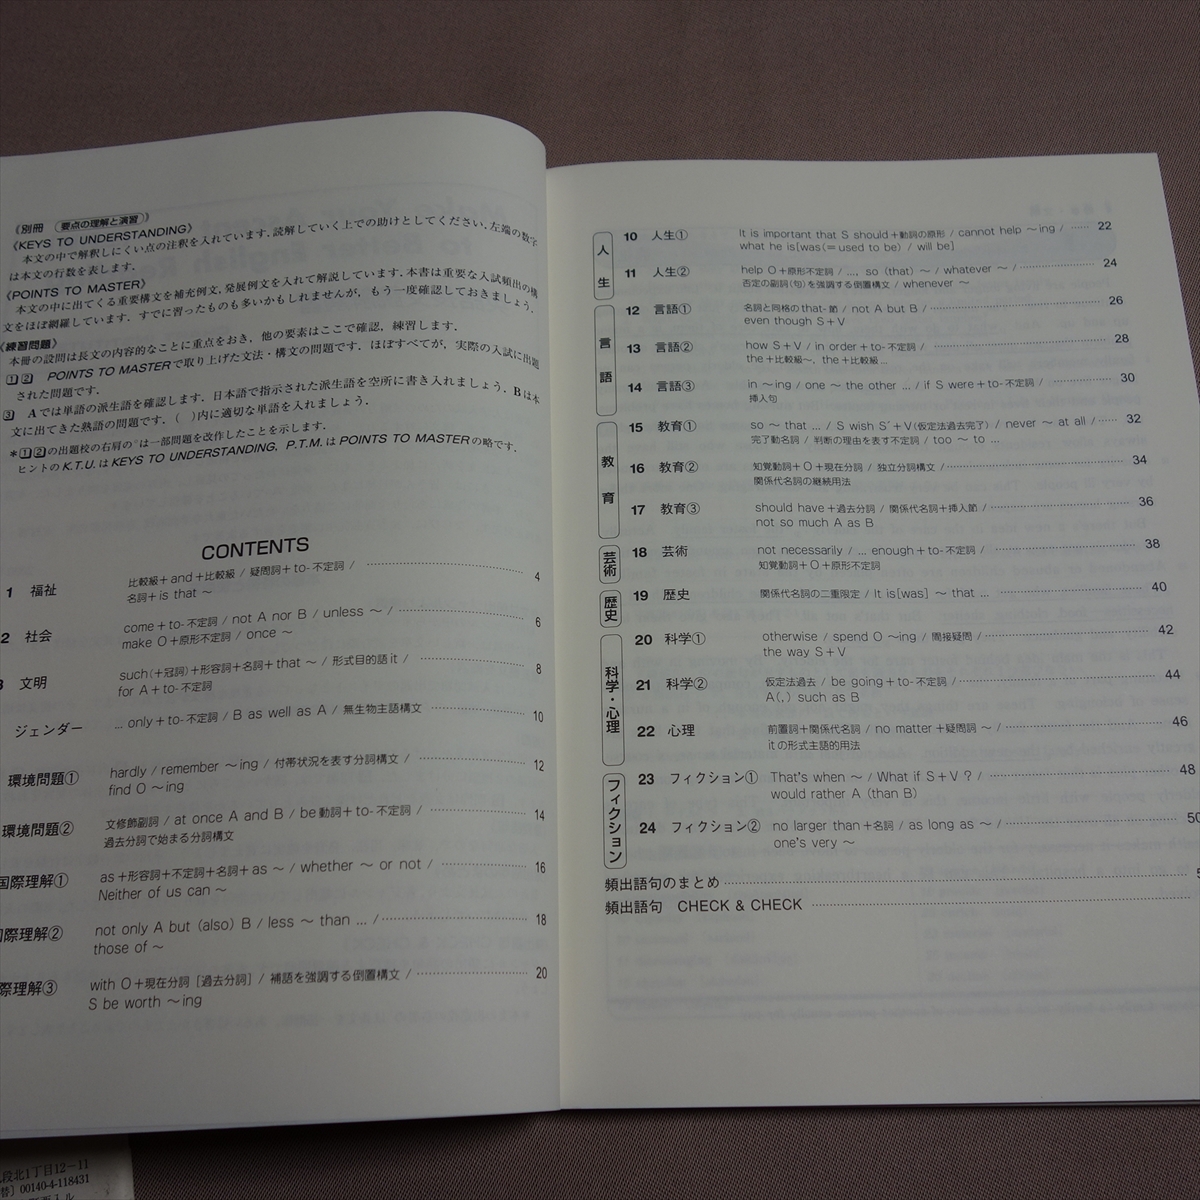 《別冊 要点の理解と演習》
《KEYS TO UNDERSTANDING》
本文の中で解釈しにくい点の注釈を入れています．読解していく上での助けとしてください．左端の数字
は本文の行数を表します．
《POINTS TO MASTER》
本文の中に出てくる重要構文を補充例文，発展例文を入れて解説しています．本書は重要な入試頻出の構
文をほぼ網羅しています．すでに習ったものも多いかもしれませんが，もう一度確認しておきましょう．
《練習問題》
本冊の設問は長文の内容的なことに重点をおき，他の要素はここで確認，練習します．
1 2 POINTS TO MASTERで取り上げた文法・構文の問題です．ほぼすべてが，実際の入試に出題
された問題です．
3 Aでは単語の派生語を確認します．日本語で指示された派生語を空所に書き入れましょう．Bは本
文に出てきた熟語の問題です．( )内に適切な単語を入れましょう．
＊1 2の出題校の右肩の°は一部問題を改作したことを示します．
ヒントのK.T.U.はKEYS TO UNDERSTANDING，P.T.M.はPOINTS TO MASTERの略です．
CONTENTS
1 福祉 比較級＋and＋比較級 / 疑問詞＋to-不定詞 / 4
名詞＋is that ～
2 社会 come＋to-不定詞 / not A nor B / unless ～ / 6
make O＋原形不定詞 / once ～
3 文明 such(＋冠詞)＋形容詞＋名詞＋that ～ / 形式目的語it / 8
for A＋to-不定詞
ジェンダー ... only＋to-不定詞 / B as well as A / 無生物主語構文 10
環境問題① hardly / remember ～ing / 付帯状況を表す分詞構文 / 12
find O ～ing
環境問題② 文修飾副詞 / at once A and B / be動詞＋to-不定詞 / 14
過去分詞で始まる分詞構文
国際理解① as＋形容詞＋不定詞＋名詞＋as ～ / whether ～ or not / 16
Neither of us can ～
国際理解② not only A but (also) B / less ～ than ... / 18
those of ～
際理解③ with O＋現在分詞［過去分詞］/ 補語を強調する倒置構文 / 20
S be worth ～ing
人生
10 人生① It is important that S should＋動詞の原形 / cannot help ～ing / 22
what he is[was(＝used to be) / will be]
11 人生② help O＋原形不定詞 / ..., so (that) ～ / whatever ～ / 24
否定の副詞(句)を強調する倒置構文 / whenever ～
言語
12 言語① 名詞と同格のthat-節 / not A but B / 26
even though S＋V
13 言語② how S＋V / in order＋to-不定詞 / 28
the＋比較級～, the＋比較級...
14 言語③ in ～ing / one ～ the other ... / if S were＋to-不定詞 / 30
挿入句
教育
15 教育① so ～ that ... / S wish S´＋V(仮定法過去完了) / never ～ at all / 32
完了動名詞 / 判断の理由を表す不定詞 / too ～ to ...
16 教育② 知覚動詞＋O＋現在分詞 / 独立分詞構文 / 34
関係代名詞の継続用法
17 教育③ should have＋過去分詞 / 関係代名詞＋挿入節 / 36
not so much A as B
芸術
18 芸術 not necessarily / ... enough＋to-不定詞 / 38
知覚動詞＋O＋原形不定詞
歴史
19 歴史 関係代名詞の二重限定 / It is[was] ～ that ... 40
科学・心理
20 科学① otherwise / spend O ～ing / 間接疑問 / 42
the way S＋V
21 科学② 仮定法過去 / be going＋to-不定詞 / 44
A(,) such as B
22 心理 前置詞＋関係代名詞 / no matter＋疑問詞 ～ / 46
itの形式主語的用法
フィクション
23 フィクション① That's when ～ / What if S＋V ? / 48
would rather A (than B)
24 フィクション② no larger than＋名詞 / as long as ～ / 50
one's very ～
頻出語句のまとめ
頻出語句 CHECK & CHECK
段北1丁目12－11
替］00140-4-118431